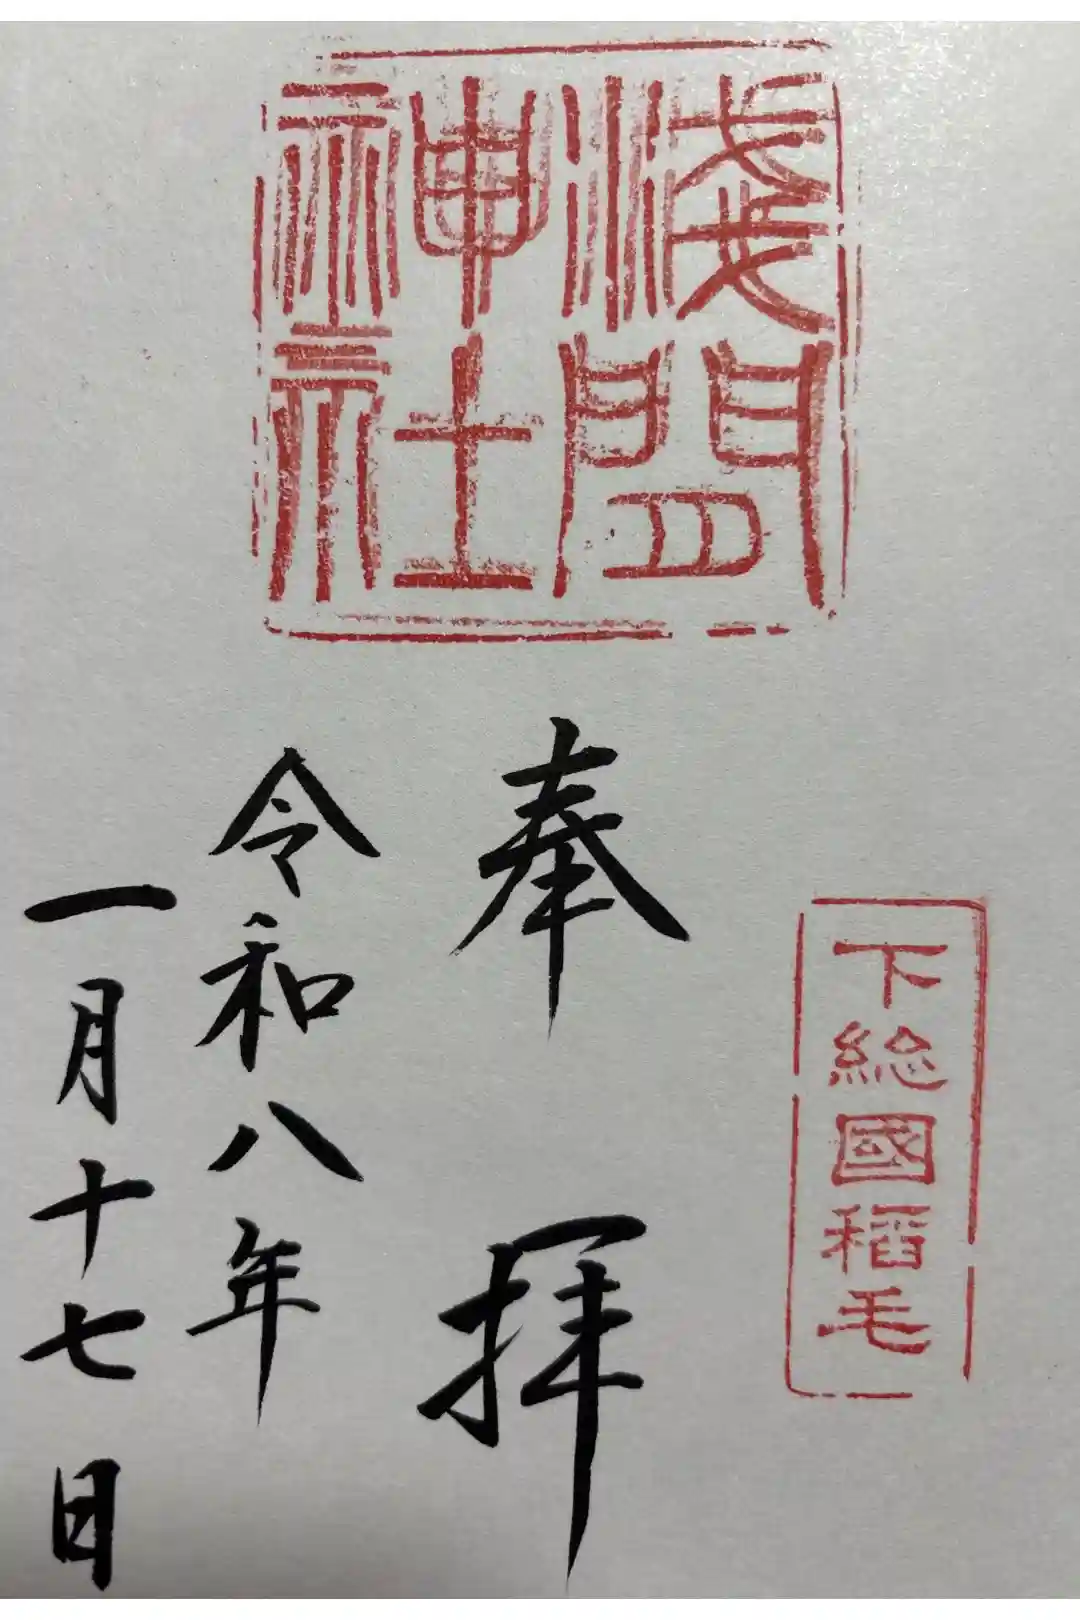 浅間
神社
下総國稻毛
奉拝
令和八年
一月十七日